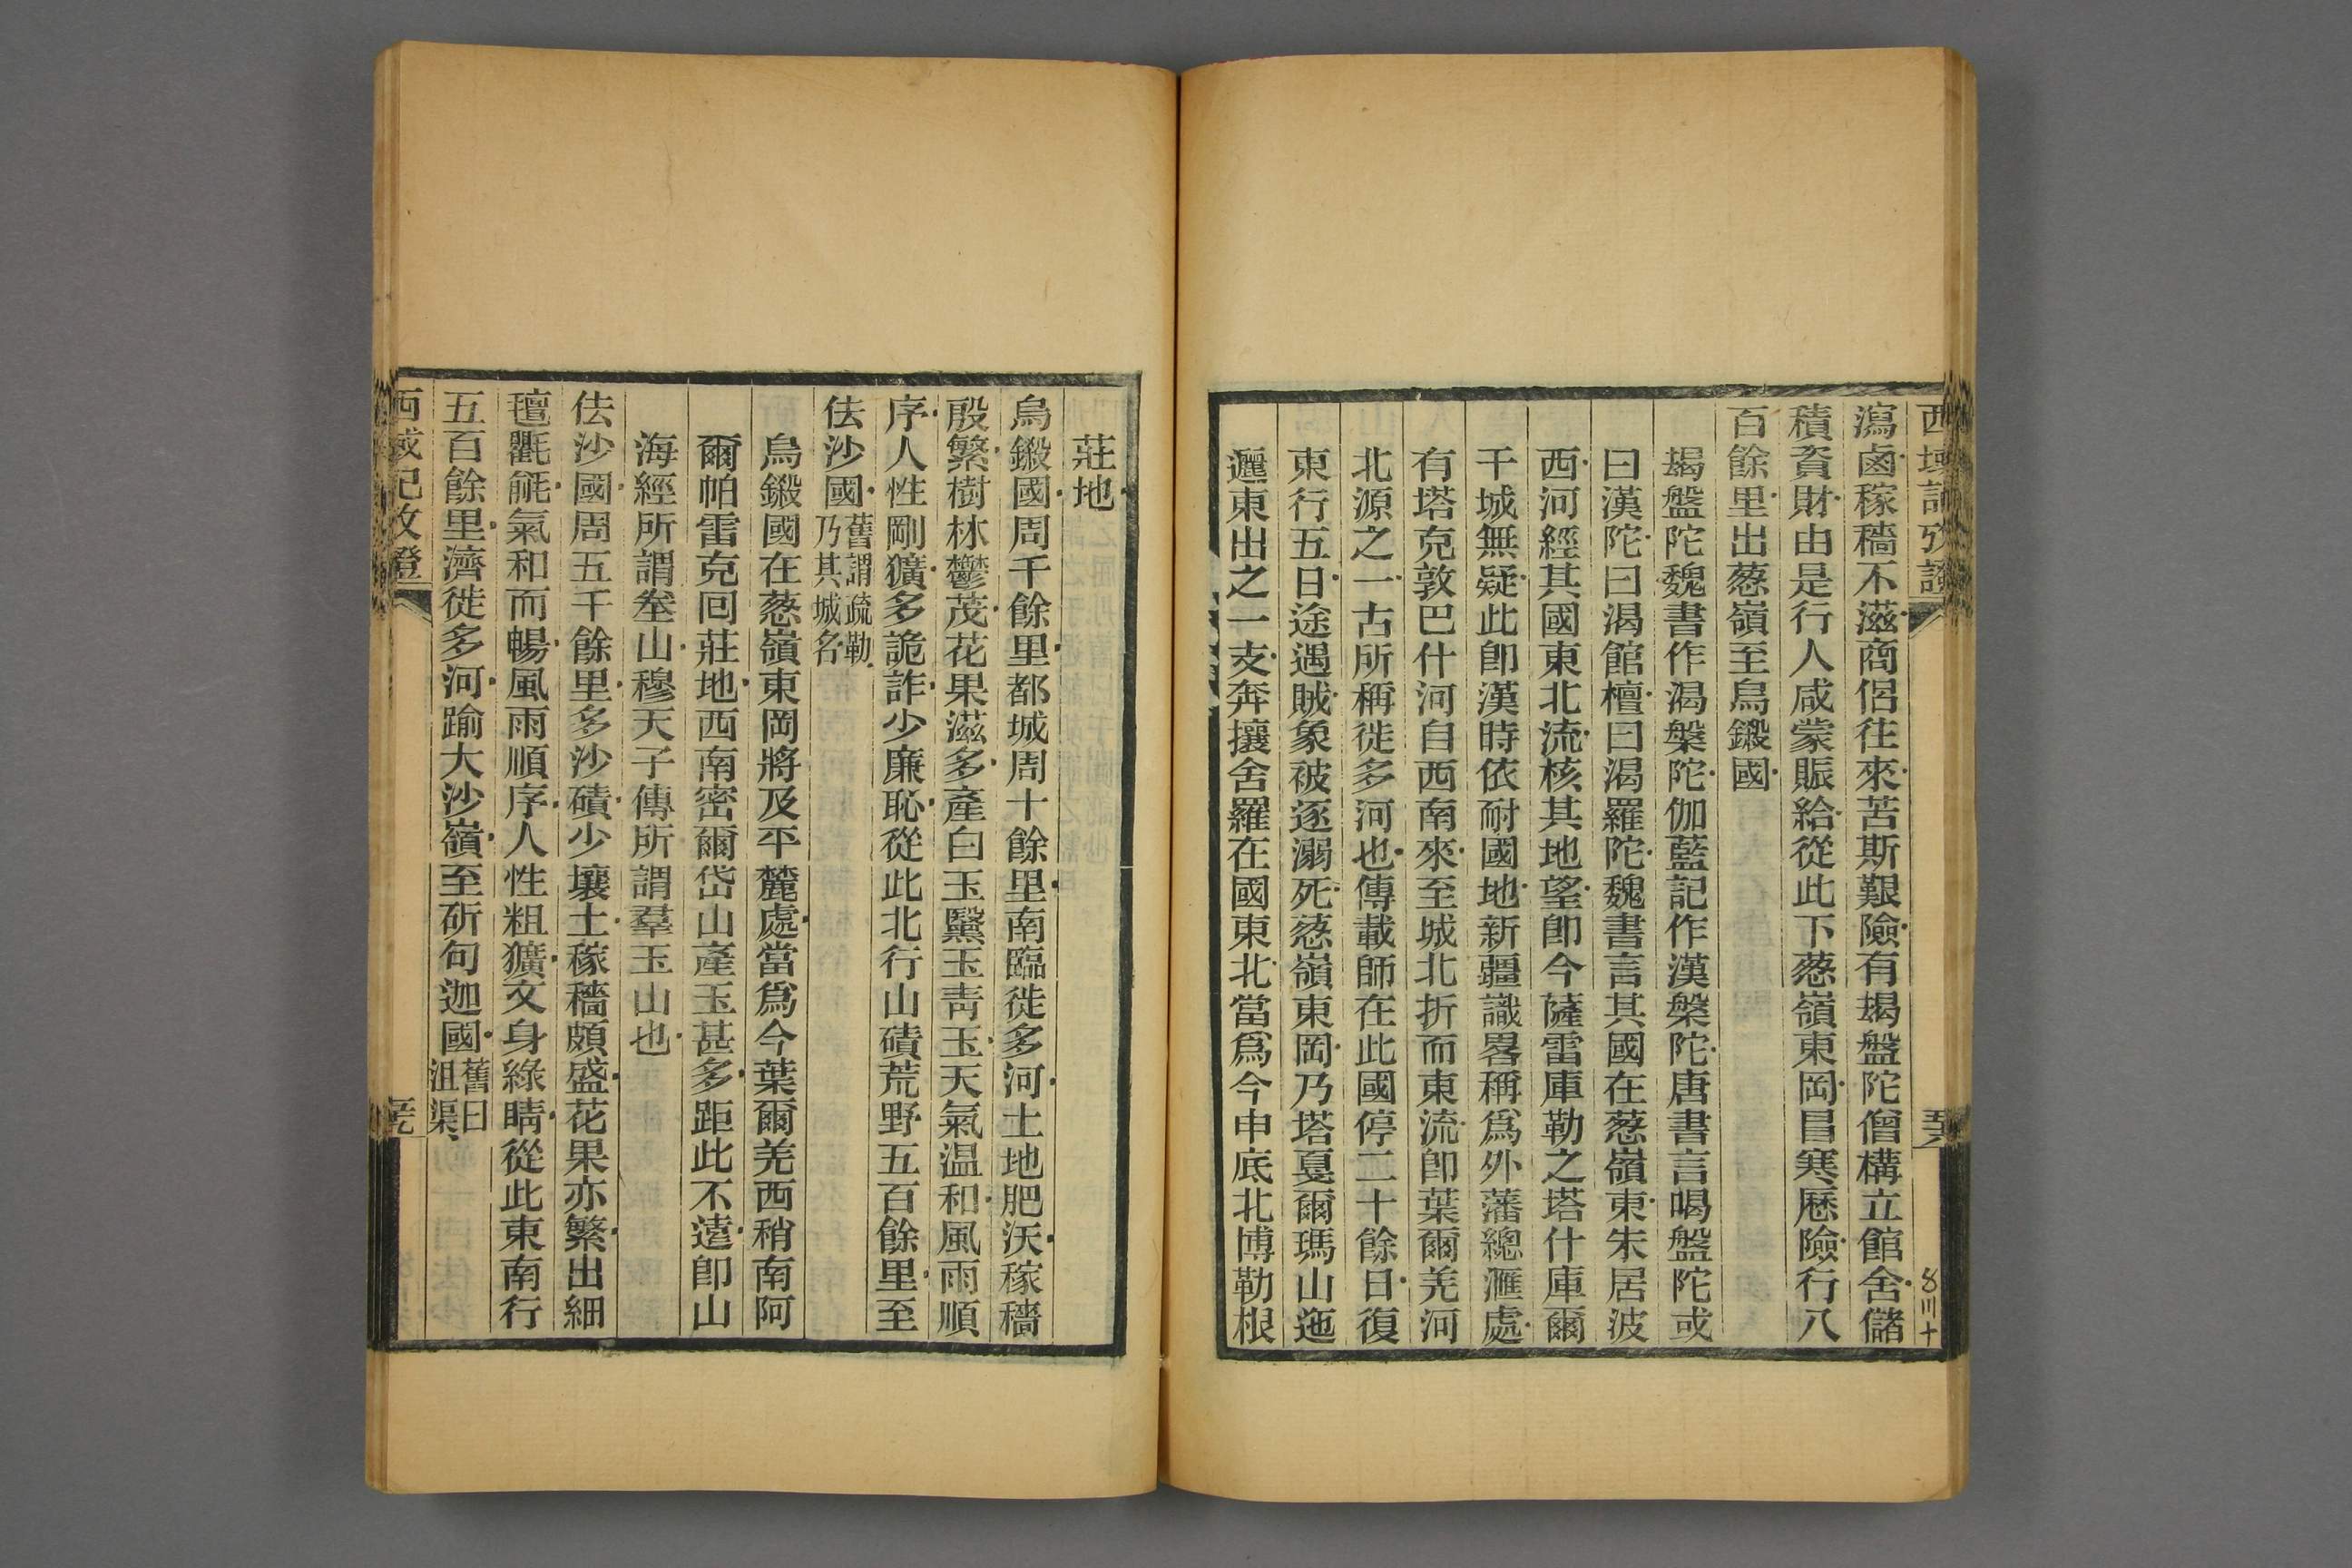 西域記攷證
瀉鹵稼穡不滋商侶往來苦斯艱險有朅盤陀僧構立館舍儲
積資財由是行人咸蒙賑給從此下葱嶺東岡冒寒歷險行八
百餘里出葱嶺至烏鎩國
朅盤陀魏書作渴槃陀伽藍記作漢槃陀唐書言喝盤陀或
曰漢陀曰渴館檀曰渴羅陀魏書言其國在葱嶺東朱居波
西河經其國東北流核其地望卽今薩雷庫勒之塔什庫爾
干城無疑此卽漢時依耐國地新疆識畧稱爲外藩總滙處
有塔克敦巴什河自西南來至城北折而東流卽葉爾羌河
北源之一古所稱徙多河也傳載師在此國停二十餘日復
東行五日途遇賊象被逐溺死葱嶺東岡乃塔戛爾瑪山迤
邐東出之一支奔攘舍羅在國東北當爲今申底北博勒根
莊地
烏鎩國周千餘里都城周十餘里南臨徙多河土地肥沃稼穡
殷繁樹林鬱茂花果滋多產白玉黳玉靑玉天氣温和風雨順
序人性剛獷多詭詐少廉恥從此北行山磧荒野五百餘里至
佉沙國舊謂疏勒
乃其城名
烏鎩國在葱嶺東岡將及平麓處當爲今葉爾羌西稍南阿
爾帕雷克囘莊地西南密爾岱山產玉甚多距此不遠卽山
海經所謂峚山穆天子傳所謂羣玉山也
佉沙國周五千餘里多沙磧少壤土稼穡頗盛花果亦繁出細
氊氍毹氣和而暢風雨順序人性粗獷文身綠睛從此東南行
五百餘里濟徙多河踰大沙嶺至斫句迦國舊曰
沮渠
西域記攷證